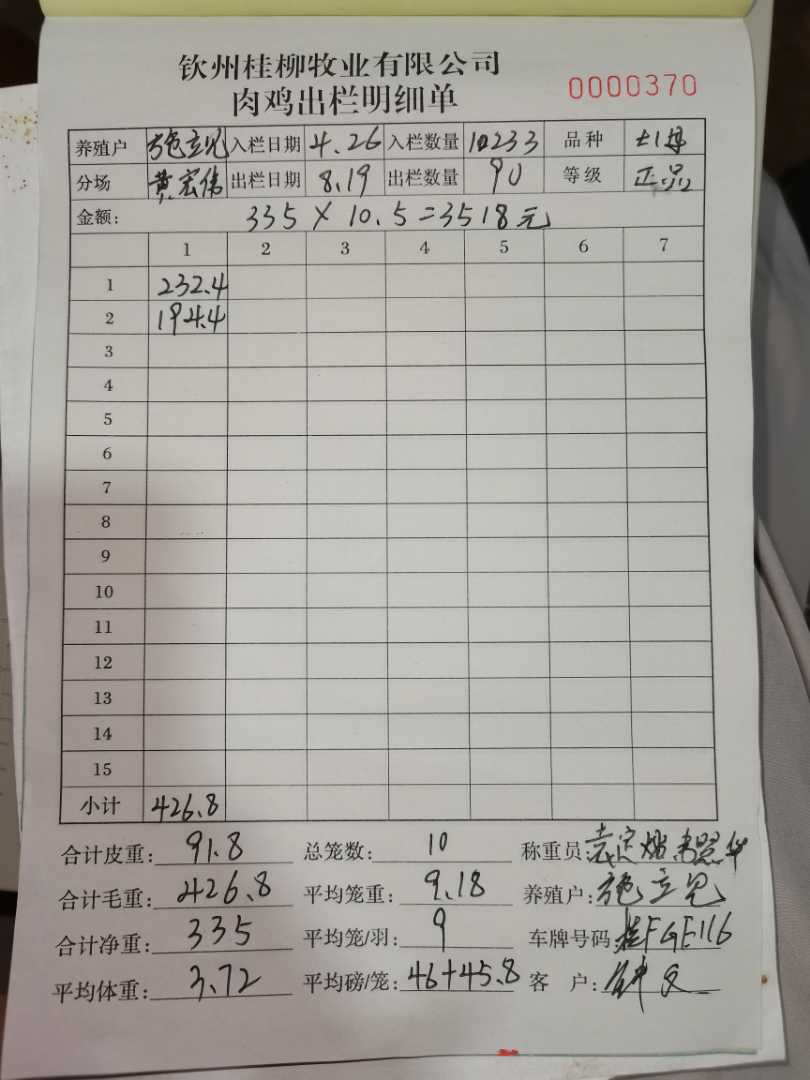 钦州桂柳牧业有限公司
肉鸡出栏明细单 0000370
养殖户 施立见 入栏日期 4.26 入栏数量 10233 品种 土1母
分场 黄宏伟 出栏日期 8.19 出栏数量 90 等级 正品
金额: 335 × 10.5=3518元
1 2 3 4 5 6 7
1 232.4
2 194.4
3
4
5
6
7
8
9
10
11
12
13
14
15
小计 426.8
合计皮重: 91.8 总笼数: 10 称重员:
合计毛重: 426.8 平均笼重: 9.18 养殖户: 施立见
合计净重: 335 平均笼/羽: 9 车牌号码: 桂FGE116
平均体重: 3.72 平均磅/笼: 46+45.8 客 户: